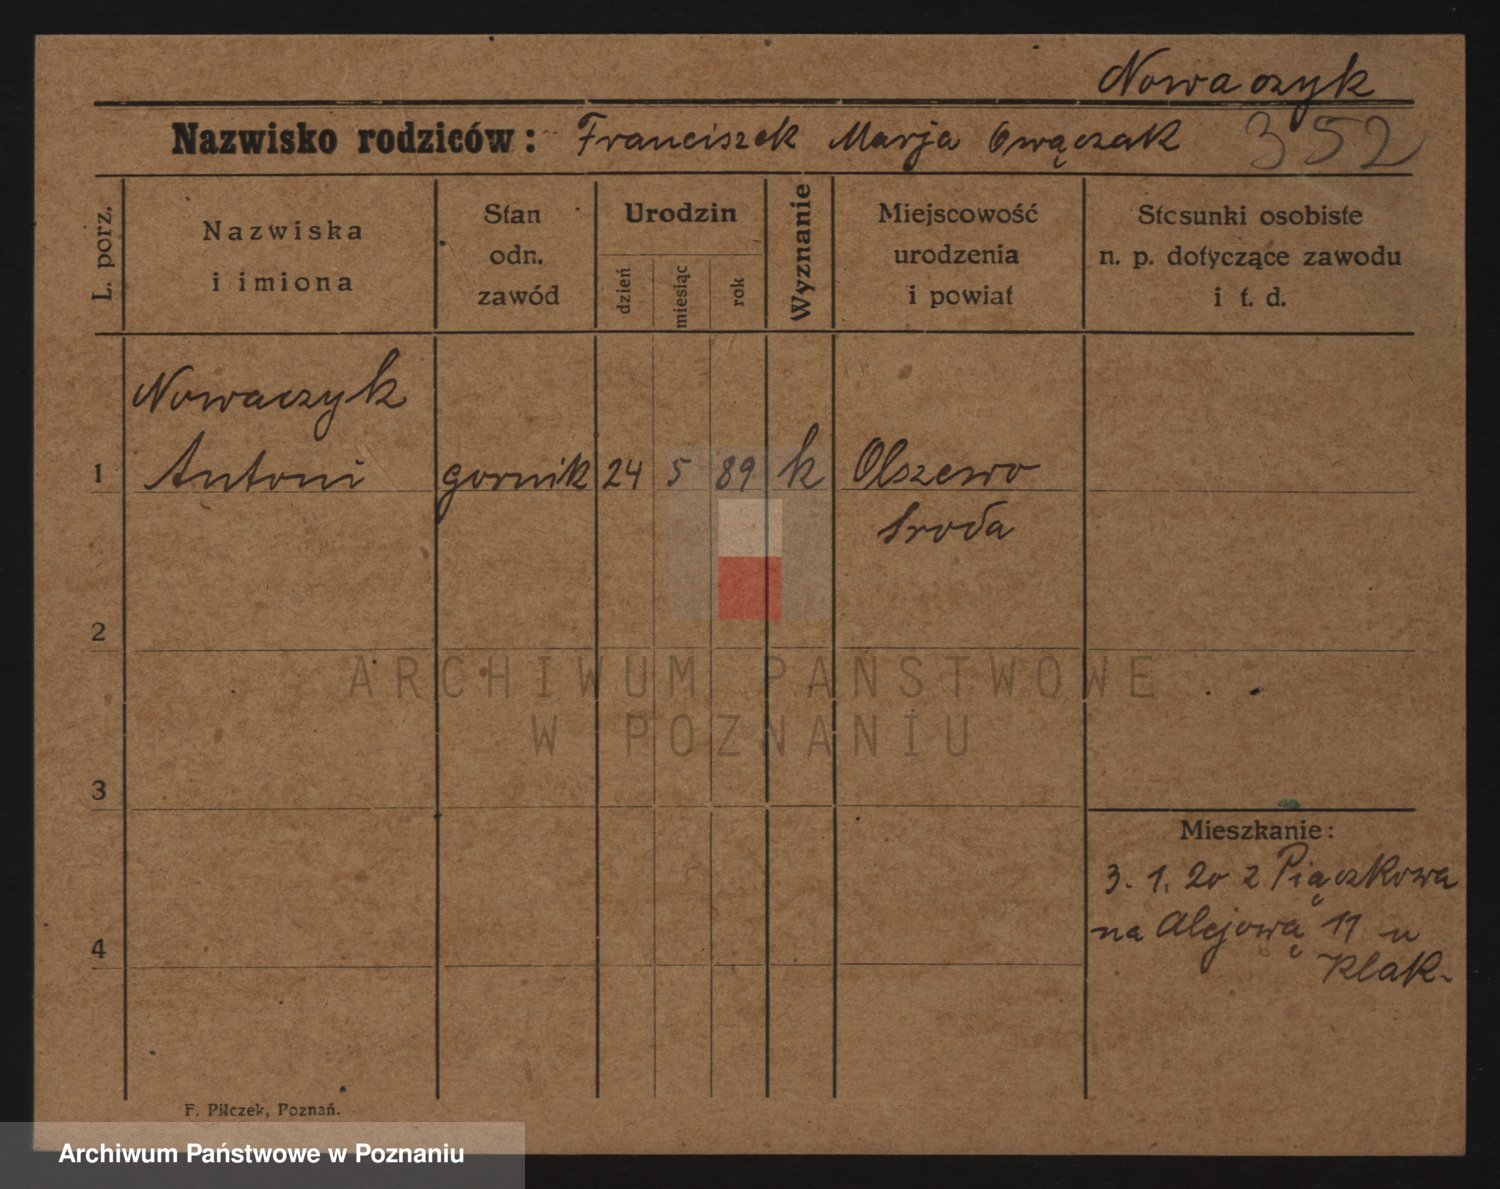 Nowaczyk
Nazwisko rodziców: Franciszek Marja Owączak 352
L. porz.
Nazwiska
i imiona
Stan
odn.
zawód
Urodzin
dzień
miesiąc
rok
Wyznanie
Miejscowość
urodzenia
i powiat
Stosunki osobiste
n. p. dotyczące zawodu
i t. d.
Nowaczyk
1 Antoni gornik 24 5 89 k Olszewo
Sroda
2
ARCHIWUM PAŃSTWOWE
W POZNANIU
3
Mieszkanie:
3. 1. 20 z Piączkowa
na Alejową 11 u
Klak.
4
F. Pilczek, Poznań.
Archiwum Państwowe w Poznaniu